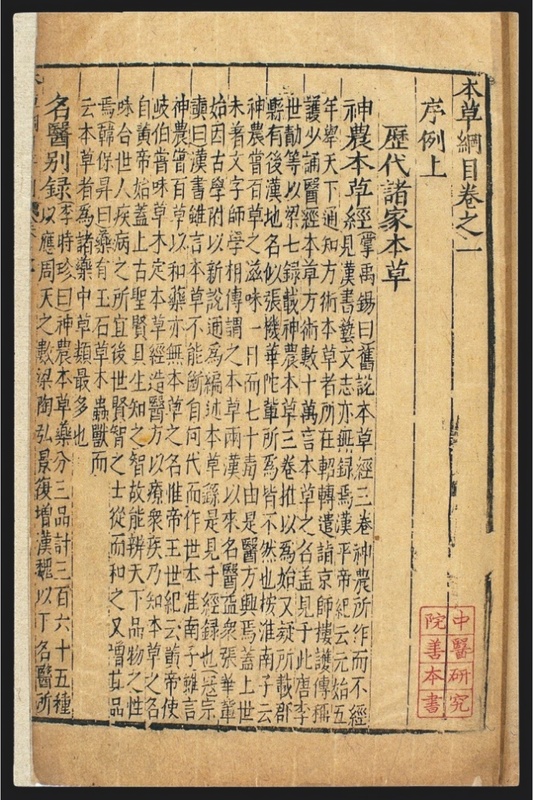 本草綱目卷之一
序例上
歷代諸家本草
神農本草經掌禹錫曰舊說本草經三卷神農所作而不經
見漢書藝文志亦無錄焉漢平帝紀云元始五
年舉天下通知方術本草者所在軺轉遣詣京師樓護傳稱
護少誦醫經本草方術數十萬言本草之名蓋見于此唐李
世勣等以梁七錄載神農本草三卷推以為始又疑所載郡
縣有後漢地名似張機華陀輩所為皆不然也按淮南子云
神農嘗百草之滋味一日而七十毒由是醫方興焉蓋上世
未著文字師學相傳謂之本草兩漢以來名醫益衆張華輩
始因古學附以新說通為編述本草繇是見于經錄也寇宗
奭曰漢書雖言本草不能斷自何代而作世本淮南子雖言
神農嘗百草以和藥亦無本草之名惟帝王世紀云黃帝使
岐伯嘗味草木定本草經造醫方以療衆疾乃知本草之名
自黃帝始蓋上古聖賢具生知之智故能辨天下品物之性
味合世人疾病之所宜後世賢智之士從而和之又增其品
焉韓保昇曰藥有玉石草木蟲獸而
云本草者為諸藥中草類最多也
名醫別錄李時珍曰神農本草藥分三品計三百六十五種
以應周天之數梁陶弘景復增漢魏以下名醫所
中醫研究
院善本書